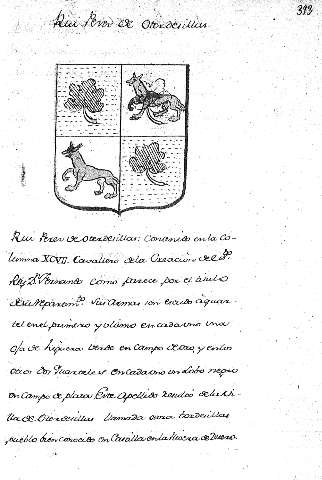 393
Rui Perez de Oterdesillas
Rui Perez de Oterdesillas: Contenido en la Co-
lumna XCVII. Cavallero de la Creacion del Sr.
Rey Dn. Fernando como parece por el titulo
de su repartimto. Sus Armas son escudo aquar-
tel en el primero y ultimo en cada uno una
oja de higuera verde en campo de oro, y en los
otros dos Quarteles en cada uno un Lobo negro
en Campo de plata. Este Apellido tendio de la Vi-
lla de Oterdesillas llamada aora tordesillas
pueblo bien conocido en Castilla en la Rivera de Duero.